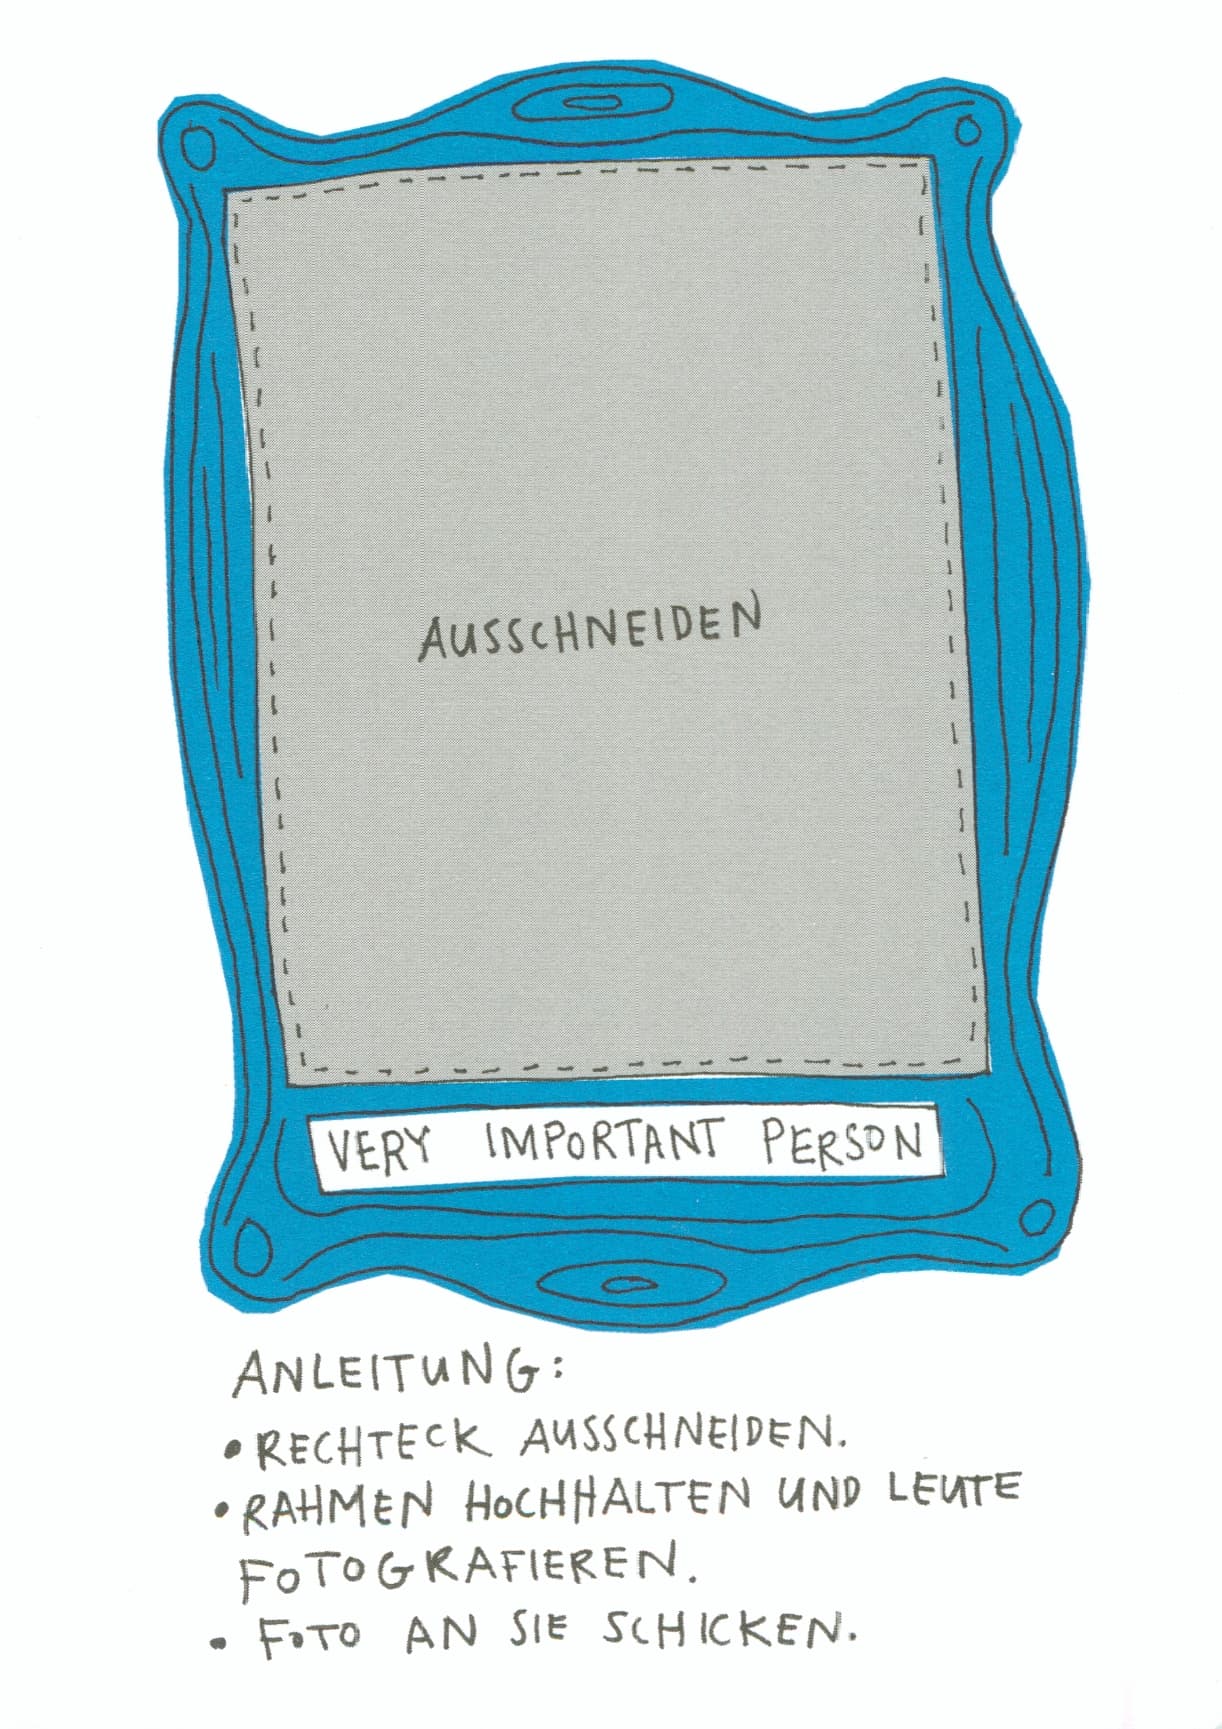 AUSSCHNEIDEN
VERY IMPORTANT PERSON
ANLEITUNG:
• RECHTECK AUSSCHNEIDEN.
• RAHMEN HOCHHALTEN UND LEUTE
FOTOGRAFIEREN.
• FOTO AN SIE SCHICKEN.